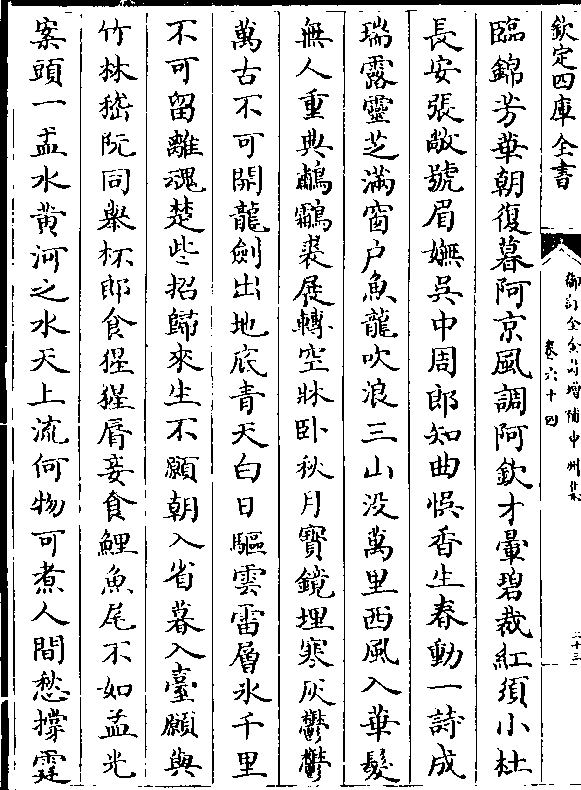 欽定四庫全書
御訂全金詩增補中州集
卷六十四
二十三
臨錦芳華朝復暮阿京風調阿欽才暈碧裁紅須小杜
長安張敞號眉嫵吳中周郎知曲悞香生春動一詩成
瑞露靈芝滿窗户魚龍吹浪三山没萬里西風入華髮
無人重典鷫鸘裘展轉空牀卧秋月寳鏡埋寒灰鬱鬱
萬古不可開龍劍出地底青天白日驅雲雷層氷千里
不可留離魂楚些招歸來生不願朝入省暮入臺願與
竹林嵇阮同舉杯郎食猩猩脣妾食鯉魚尾不如孟光
案頭一盂水黄河之水天上流何物可煮人間愁撐霆